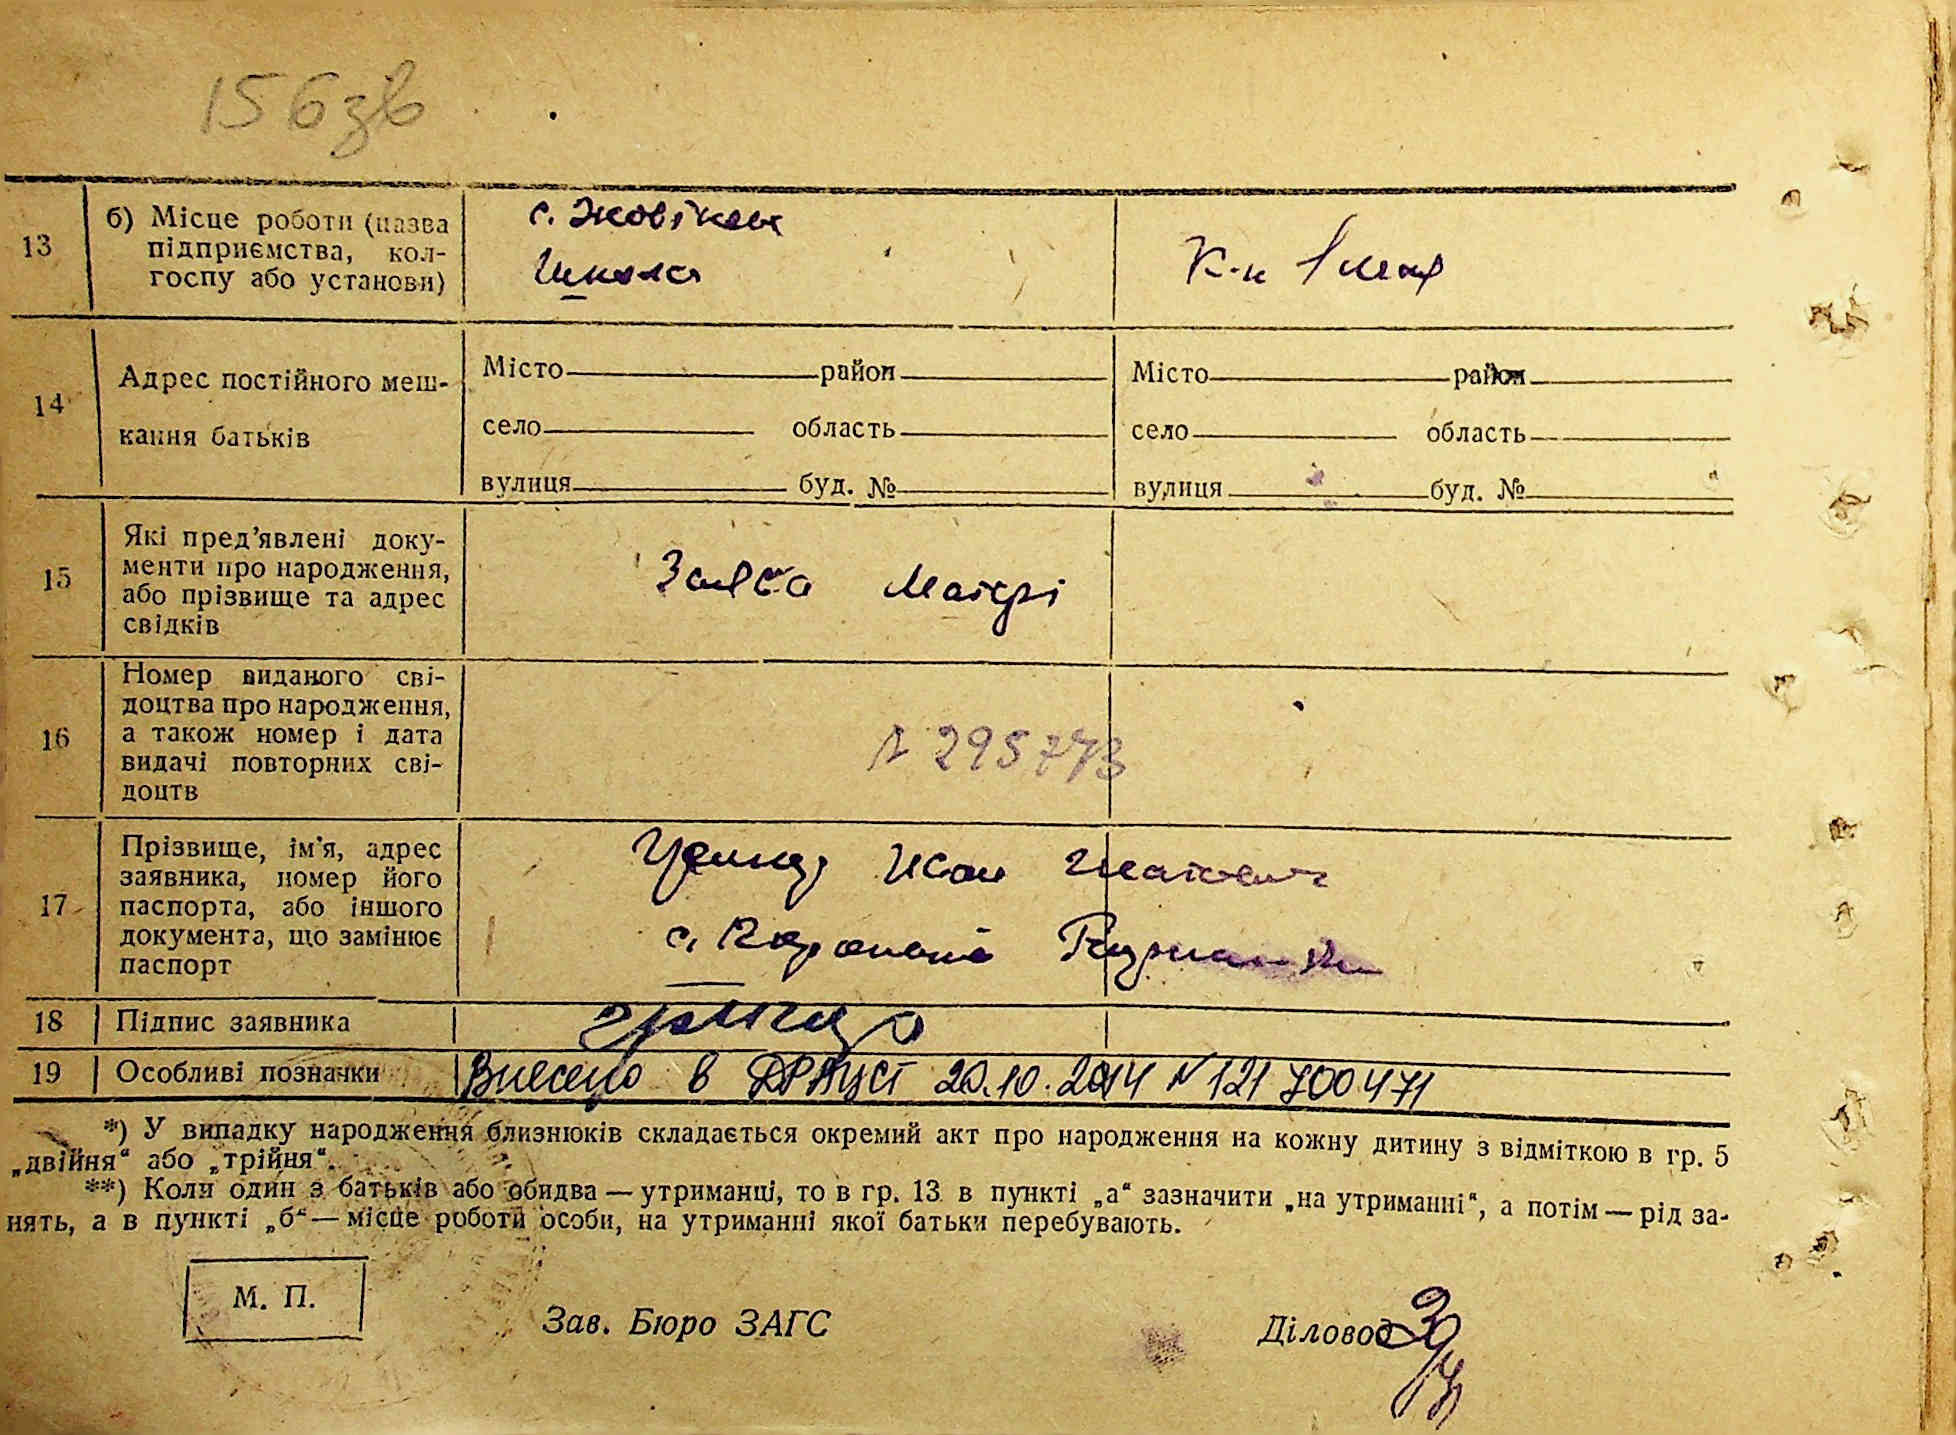 156зв
13
б) Місце роботи (назва
підприємства, кол-
госпу або установи)
с.
Школа
К-п 1 мая
14
Адрес постійного меш-
кання батьків
Місто район
село область
вулиця буд. №
Місто район
село область
вулиця буд. №
15
Які пред'явлені доку-
менти про народження,
або прізвище та адрес
свідків
Заява Матері
16
Номер виданого сві-
доцтва про народження,
а також номер і дата
видачі повторних сві-
доцтв
№ 295773
17
Прізвище, ім'я, адрес
заявника, номер його
паспорта, або іншого
документа, що замінює
паспорт
Иван
с.
18 Підпис заявника
19 Особливі позначки
Внесено в ДРАЦСГ 20.10.2014 № 121 700471
*) У випадку народження близнюків складається окремий акт про народження на кожну дитину з відміткою в гр. 5
„двійня“ або „трійня“.
**) Коли один з батьків або обидва — утриманці, то в гр. 13 в пункті „а“ зазначити „на утриманні“, а потім — рід за-
нять, а в пункті „б“ — місце роботи особи, на утриманні якої батьки перебувають.
М. П.
Зав. Бюро ЗАГС
Діловод